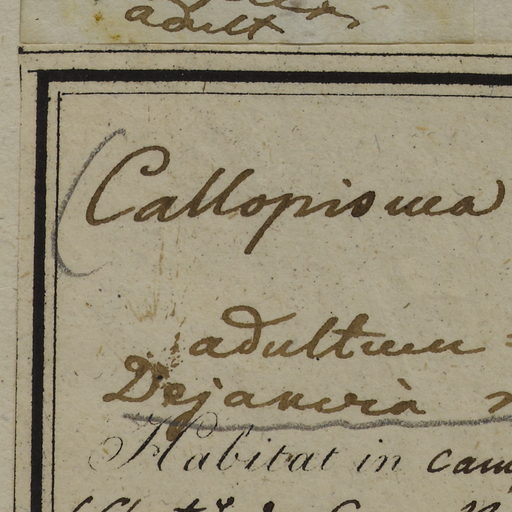 adult
(Callopisma
adultum
Dejanira
Habitat in